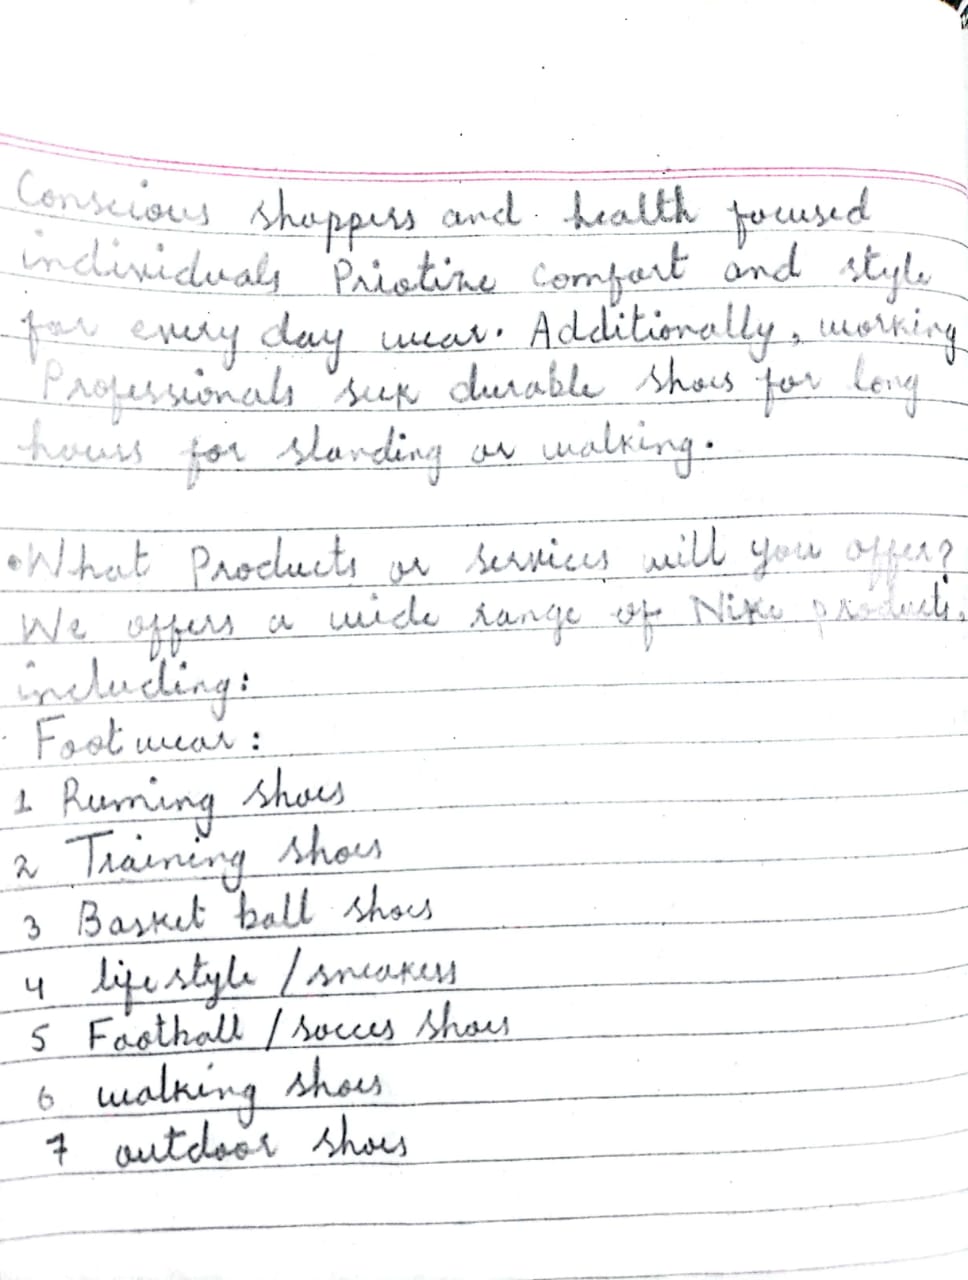 Conscious shoppers and health focused
individuals Priotize comfort and style
for every day wear. Additionally, working
Professionals seek durable shoes for long
hours for standing or walking.
•What Products or services will you offer?
We offers a wide range of Nike products.
including:
Foot wear:
1 Running shoes
2 Training shoes
3 Basket ball shoes
4 life style / sneakers
5 Football / soccer shoes
6 walking shoes
7 outdoor shoes